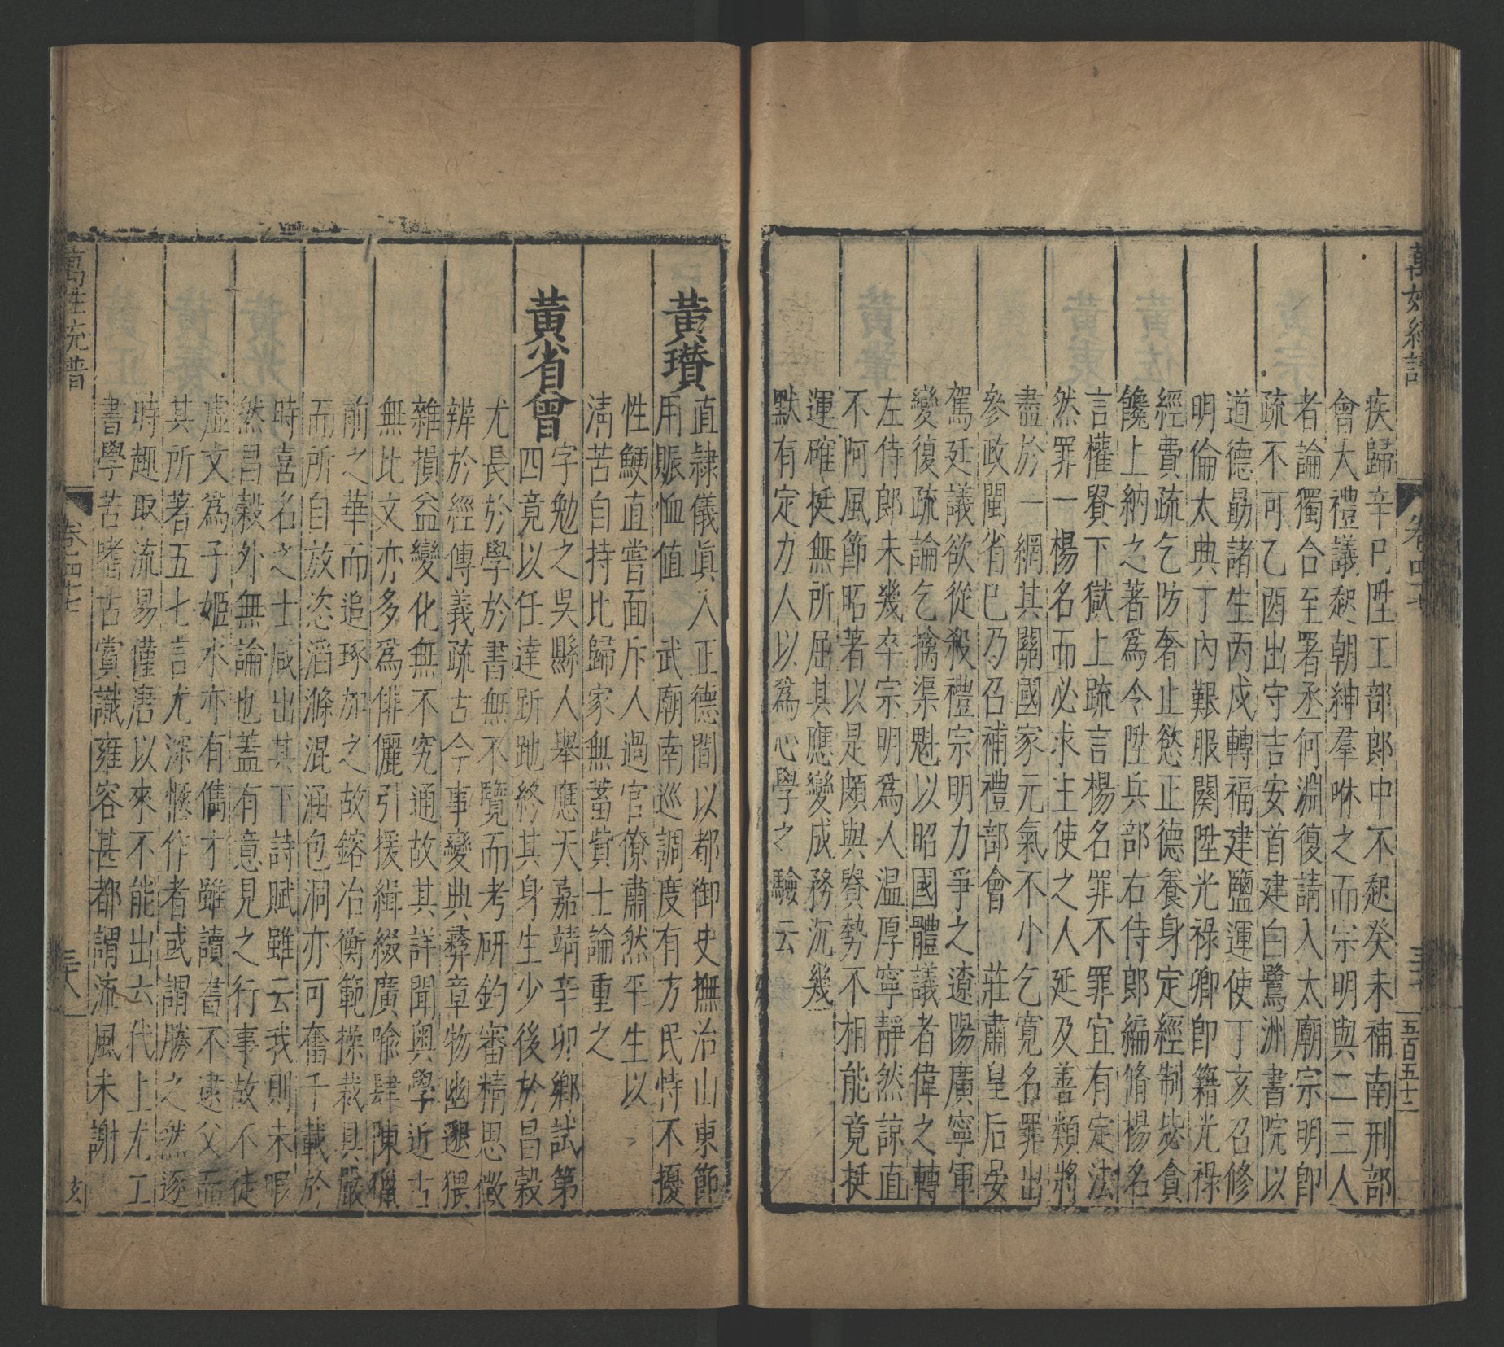 萬姓統譜
卷四七
五百五十二
疾歸辛巳陞工部郎中不起癸未補南刑部
會大禮議起朝紳羣咻之而宗明與二三人
者論獨合至署丞何淵復請入太廟宗明即
疏不可乙酉出守吉安首建白鷺洲書院以
道德勗諸生丙戌轉福建鹽運使丁亥召修
明倫大典丁內艱服闋陞光祿卿卽籍光祿
經費疏乞防奢止慾正德養身定經制毖貪
饞上納之著為令陞兵部右侍郎編脩楊名
言權賢下獄上疏言楊名罪不罪宜有定法
然罪一楊名而必求主使之人延及善類將
盡於一網其關國家元氣不小乞寬名罪出
參政閩省已乃召補禮部會莊肅皇后妟
駕廷議欲從殺禮宗明力爭之遼陽廣寧軍
變復疏論乞擒渠魁以昭國體議者偉之轉
左侍郎未幾卒宗明為人溫厚寧靜然諒直
不阿風節昭著以是頗與貴勢不相能竟挺
運確挺無所屈其應變成務沉幾
默有定力人以為心學之驗云
黃瓚
直隷儀眞人正德間以都御史撫治山東節
用賑恤值武廟南巡調度有方民恃不擾
性鯁直嘗面斥人過官僚肅然平生以
淸苦自持比歸家無蓄貲士論重之
黃省曾
字勉之吳縣人舉應天嘉靖辛卯鄉試第
四竟以任達跅跎終其身生少後於昌榖
尤長於學於書無不覽而考研鈞審精思微
辨於經傳義疏古今事變典彝章物幽遐猥
雜損益變化無不究通故其詳聞奧學近古
無比文亦多為俳儷引援緝綴廣喻肆陳獵
前之華而追琢加之故鎔冶衡範操裁具嚴
而所自放恣滔滌混涵包洞亦可奮千載於
時喜名之士咸出其下詩賦雖云我則未暇
然昌榖外無論也蓋有意見之行事故不徒
虛文為子姬水亦有儁才雖讀書不逮父而
其所著五七言尤深愜作者或謂勝之然逐
時趣取流易僅唐以來不能出六代上尤工
書學苦嗜古賞識雍容甚都謂流風未謝
萬姓統譜
卷四七
三十八